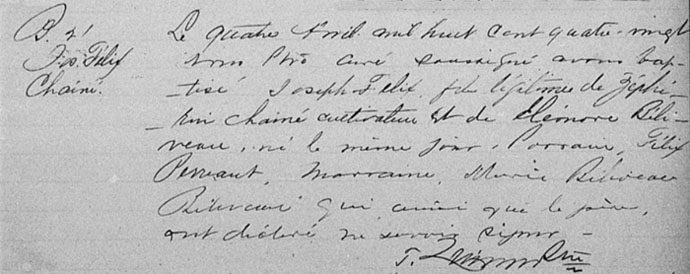 B. 21
Jos. Félix
Chainé.
Le quatre Avril mil huit cent quatre-vingt
nous Ptre curé soussigné avons bap-
-tisé Joseph-Félix, fils légitime de Zéphi-
-rin Chainé cultivateur et de Eléonore Béli-
veau, né le même jour. Parrain, Félix
Perreault, Marraine, Marie Béliveau
Béliveau qui ainsi que le père,
ont déclaré ne savoir signer -
Ptre